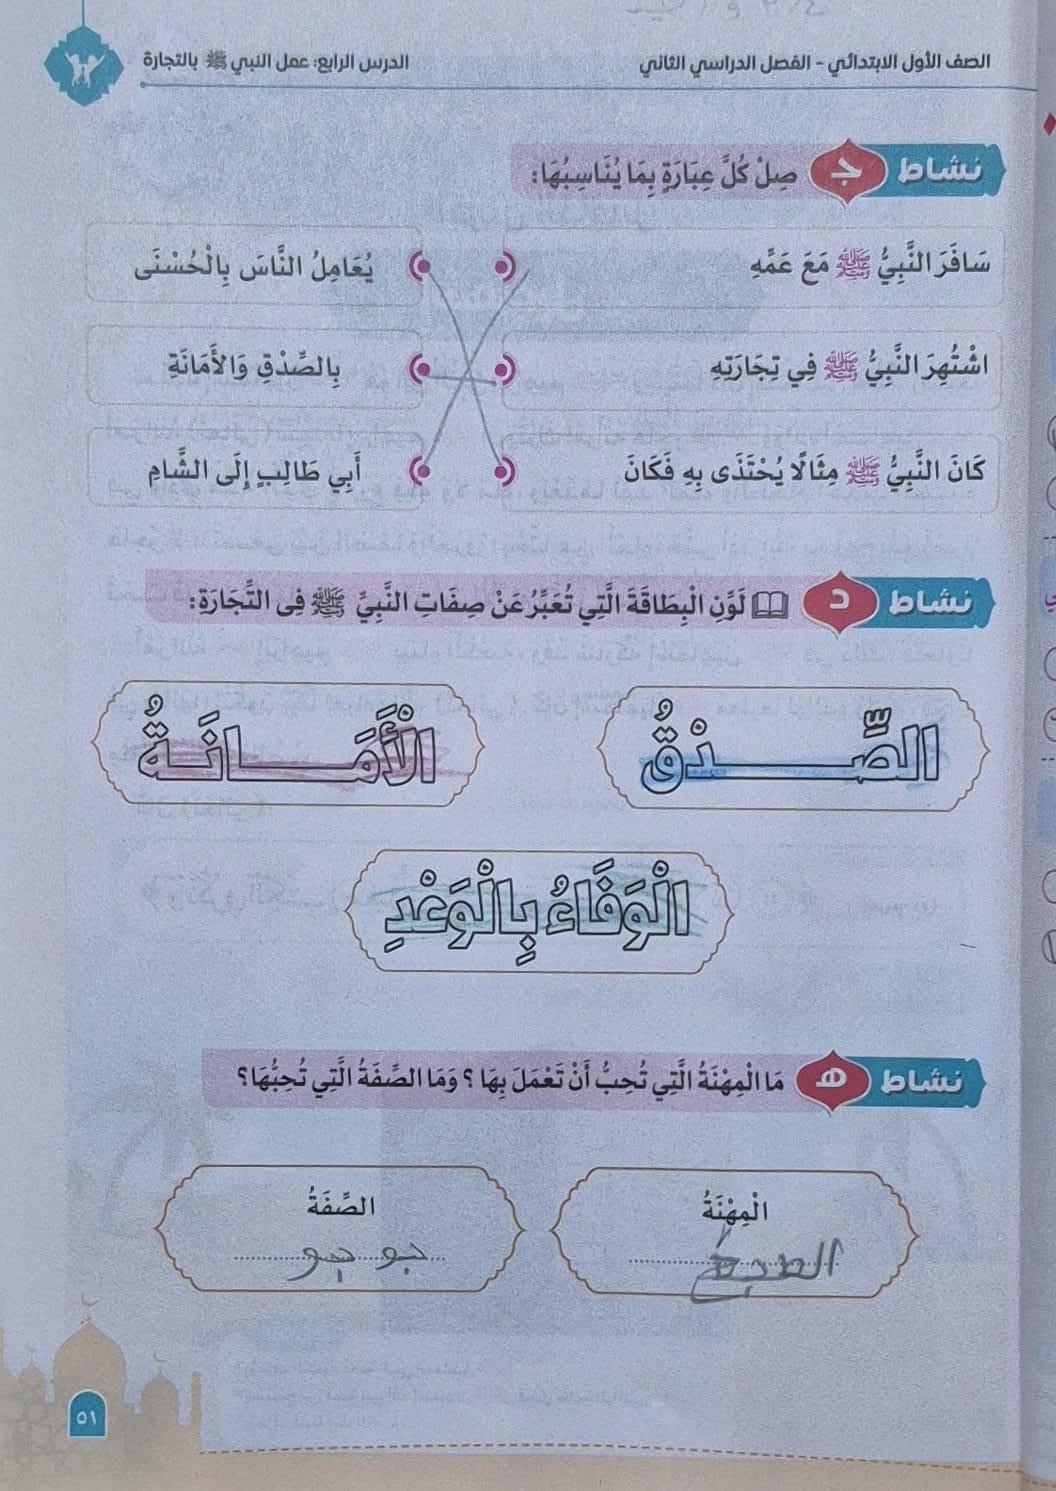 الصف الأول الابتدائي - الفصل الدراسي الثاني
الدرس الرابع: عمل النبي ﷺ بالتجارة
نشاط ج صِلْ كُلَّ عِبَارَةٍ بِمَا يُنَاسِبُهَا:
سَافَرَ النَّبِيُّ ﷺ مَعَ عَمِّهِ
يُعَامِلُ النَّاسَ بِالْحُسْنَى
اشْتُهِرَ النَّبِيُّ ﷺ فِي تِجَارَتِهِ
بِالصِّدْقِ وَالأَمَانَةِ
كَانَ النَّبِيُّ ﷺ مِثَالًا يُحْتَذَى بِهِ فَكَانَ
أَبِي طَالِبٍ إِلَى الشَّامِ
نشاط د لَوِّنِ الْبِطَاقَةَ الَّتِي تُعَبِّرُ عَنْ صِفَاتِ النَّبِيِّ ﷺ فِى التِّجَارَةِ:
الصِّـدْقُ
الْأَمَـانَـةُ
الْوَفَاءُ بِالْوَعْدِ
نشاط هـ مَا الْمِهْنَةُ الَّتِي تُحِبُّ أَنْ تَعْمَلَ بِهَا؟ وَمَا الصِّفَةُ الَّتِي تُحِبُّهَا؟
الْمِهْنَةُ
الصِّفَةُ
٥١